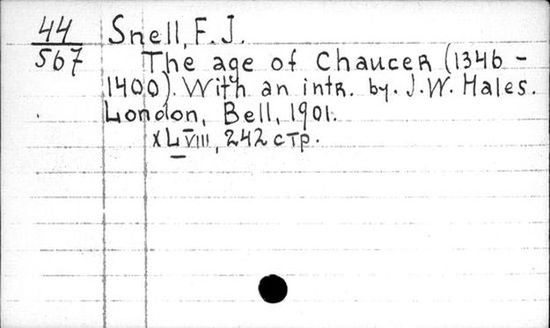 44
567
Snell, F. J.
The age of Chaucer (1346 -
1400). With an intr. by. J. W. Hales.
London, Bell, 1901.
XLVIII, 242 стр.